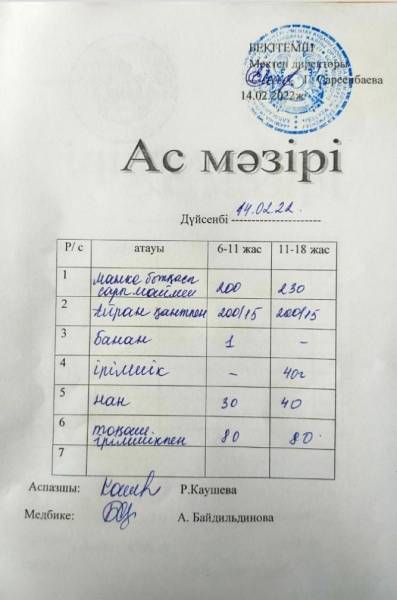 БЕКІТЕМІН
Мектеп директоры
Г. Сарсенбаева
14.02.2022ж
Ас мәзірі
Дүйсенбі 14.02.22.
Р/ с атауы 6-11 жас 11-18 жас
1 манка ботқасы
сары маймен 200 230
2 Айран қантпен 200/15 200/15
3 банан 1 -
4 ірімшік - 40г
5 нан 30 40
6 тоқаш
ірімшікпен 80 80.
7
Аспазшы: Р.Каушева
Медбике: А. Байдильдинова